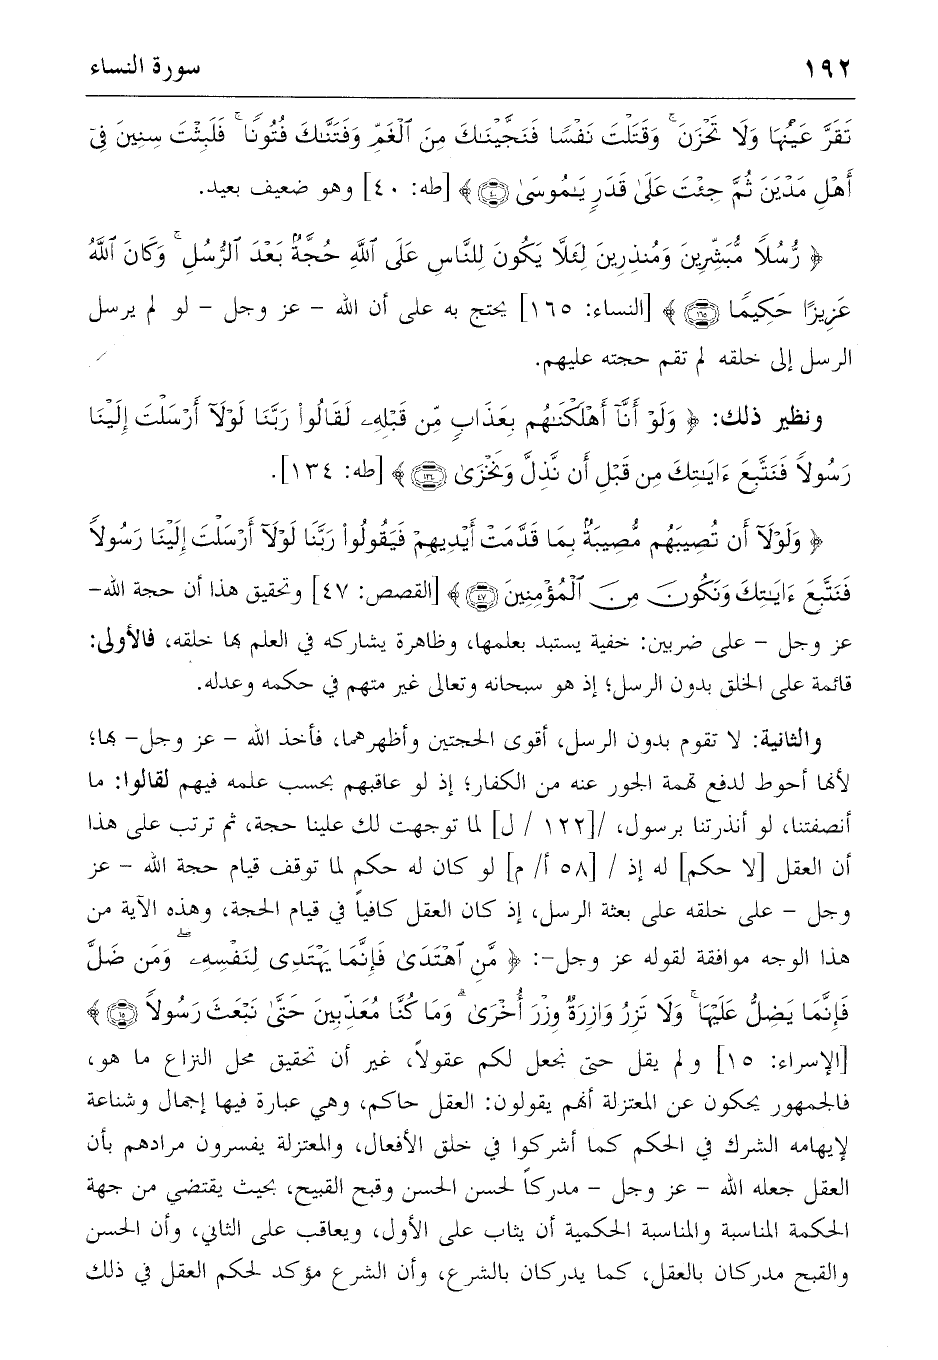 ١٩٢ سورة النساء
تَقَرَّ عَيْنُهَا وَلَا تَحْزَنَ ۚ وَقَتَلْتَ نَفْسًا فَنَجَّيْنَـٰكَ مِنَ ٱلْغَمِّ وَفَتَنَّـٰكَ فُتُونًا ۚ فَلَبِثْتَ سِنِينَ فِىٓ
أَهْلِ مَدْيَنَ ثُمَّ جِئْتَ عَلَىٰ قَدَرٍ يَـٰمُوسَىٰ ﴿٤٠﴾ [طه: ٤٠] وهو ضعيف بعيد.
﴿ رُّسُلًا مُّبَشِّرِينَ وَمُنذِرِينَ لِئَلَّا يَكُونَ لِلنَّاسِ عَلَى ٱللَّهِ حُجَّةٌۢ بَعْدَ ٱلرُّسُلِ ۚ وَكَانَ ٱللَّهُ
عَزِيزًا حَكِيمًا ﴿١٦٥﴾ [النساء: ١٦٥] يحتج به على أن الله – عز وجل – لو لم يرسل
الرسل إلى خلقه لم تقم حجته عليهم.
ونظير ذلك: ﴿ وَلَوْ أَنَّآ أَهْلَكْنَـٰهُم بِعَذَابٍ مِّن قَبْلِهِۦ لَقَالُوا۟ رَبَّنَا لَوْلَآ أَرْسَلْتَ إِلَيْنَا
رَسُولًا فَنَتَّبِعَ ءَايَـٰتِكَ مِن قَبْلِ أَن نَّذِلَّ وَنَخْزَىٰ ﴿١٣٤﴾ [طه: ١٣٤].
﴿ وَلَوْلَآ أَن تُصِيبَهُم مُّصِيبَةٌۢ بِمَا قَدَّمَتْ أَيْدِيهِمْ فَيَقُولُوا۟ رَبَّنَا لَوْلَآ أَرْسَلْتَ إِلَيْنَا رَسُولًا
فَنَتَّبِعَ ءَايَـٰتِكَ وَنَكُونَ مِنَ ٱلْمُؤْمِنِينَ ﴿٤٧﴾ [القصص: ٤٧] وتحقيق هذا أن حجة الله–
عز وجل – على ضربين: خفية يستبد بعلمها، وظاهرة يشاركه في العلم بها خلقه، فالأولى:
قائمة على الخلق بدون الرسل؛ إذ هو سبحانه وتعالى غير متهم في حكمه وعدله.
والثانية: لا تقوم بدون الرسل، أقوى الحجتين وأظهرهما، فأخذ الله – عز وجل– بها؛
لأنها أحوط لدفع تهمة الجور عنه من الكفار؛ إذ لو عاقبهم بحسب علمه فيهم لقالوا: ما
أنصفتنا، لو أنذرتنا برسول، /[١٢٢ / ل] لما توجهت لك علينا حجة، ثم ترتب على هذا
أن العقل [لا حكم] له إذ / [٥٨ أ/ م] لو كان له حكم لما توقف قيام حجة الله – عز
وجل – على خلقه على بعثة الرسل، إذ كان العقل كافياً في قيام الحجة، وهذه الآية من
هذا الوجه موافقة لقوله عز وجل–: ﴿ مَّنِ ٱهْتَدَىٰ فَإِنَّمَا يَهْتَدِى لِنَفْسِهِۦ ۖ وَمَن ضَلَّ
فَإِنَّمَا يَضِلُّ عَلَيْهَا ۚ وَلَا تَزِرُ وَازِرَةٌ وِزْرَ أُخْرَىٰ ۗ وَمَا كُنَّا مُعَذِّبِينَ حَتَّىٰ نَبْعَثَ رَسُولًا ﴿١٥﴾
[الإسراء: ١٥] و لم يقل حتى نجعل لكم عقولاً، غير أن تحقيق محل النزاع ما هو،
فالجمهور يحكون عن المعتزلة أنهم يقولون: العقل حاكم، وهي عبارة فيها إجمال وشناعة
لإيهامه الشرك في الحكم كما أشركوا في خلق الأفعال، والمعتزلة يفسرون مرادهم بأن
العقل جعله الله – عز وجل – مدركاً لحسن الحسن وقبح القبيح، بحيث يقتضي من جهة
الحكمة المناسبة والمناسبة الحكمية أن يثاب على الأول، ويعاقب على الثاني، وأن الحسن
والقبح مدركان بالعقل، كما يدركان بالشرع، وأن الشرع مؤكد لحكم العقل في ذلك